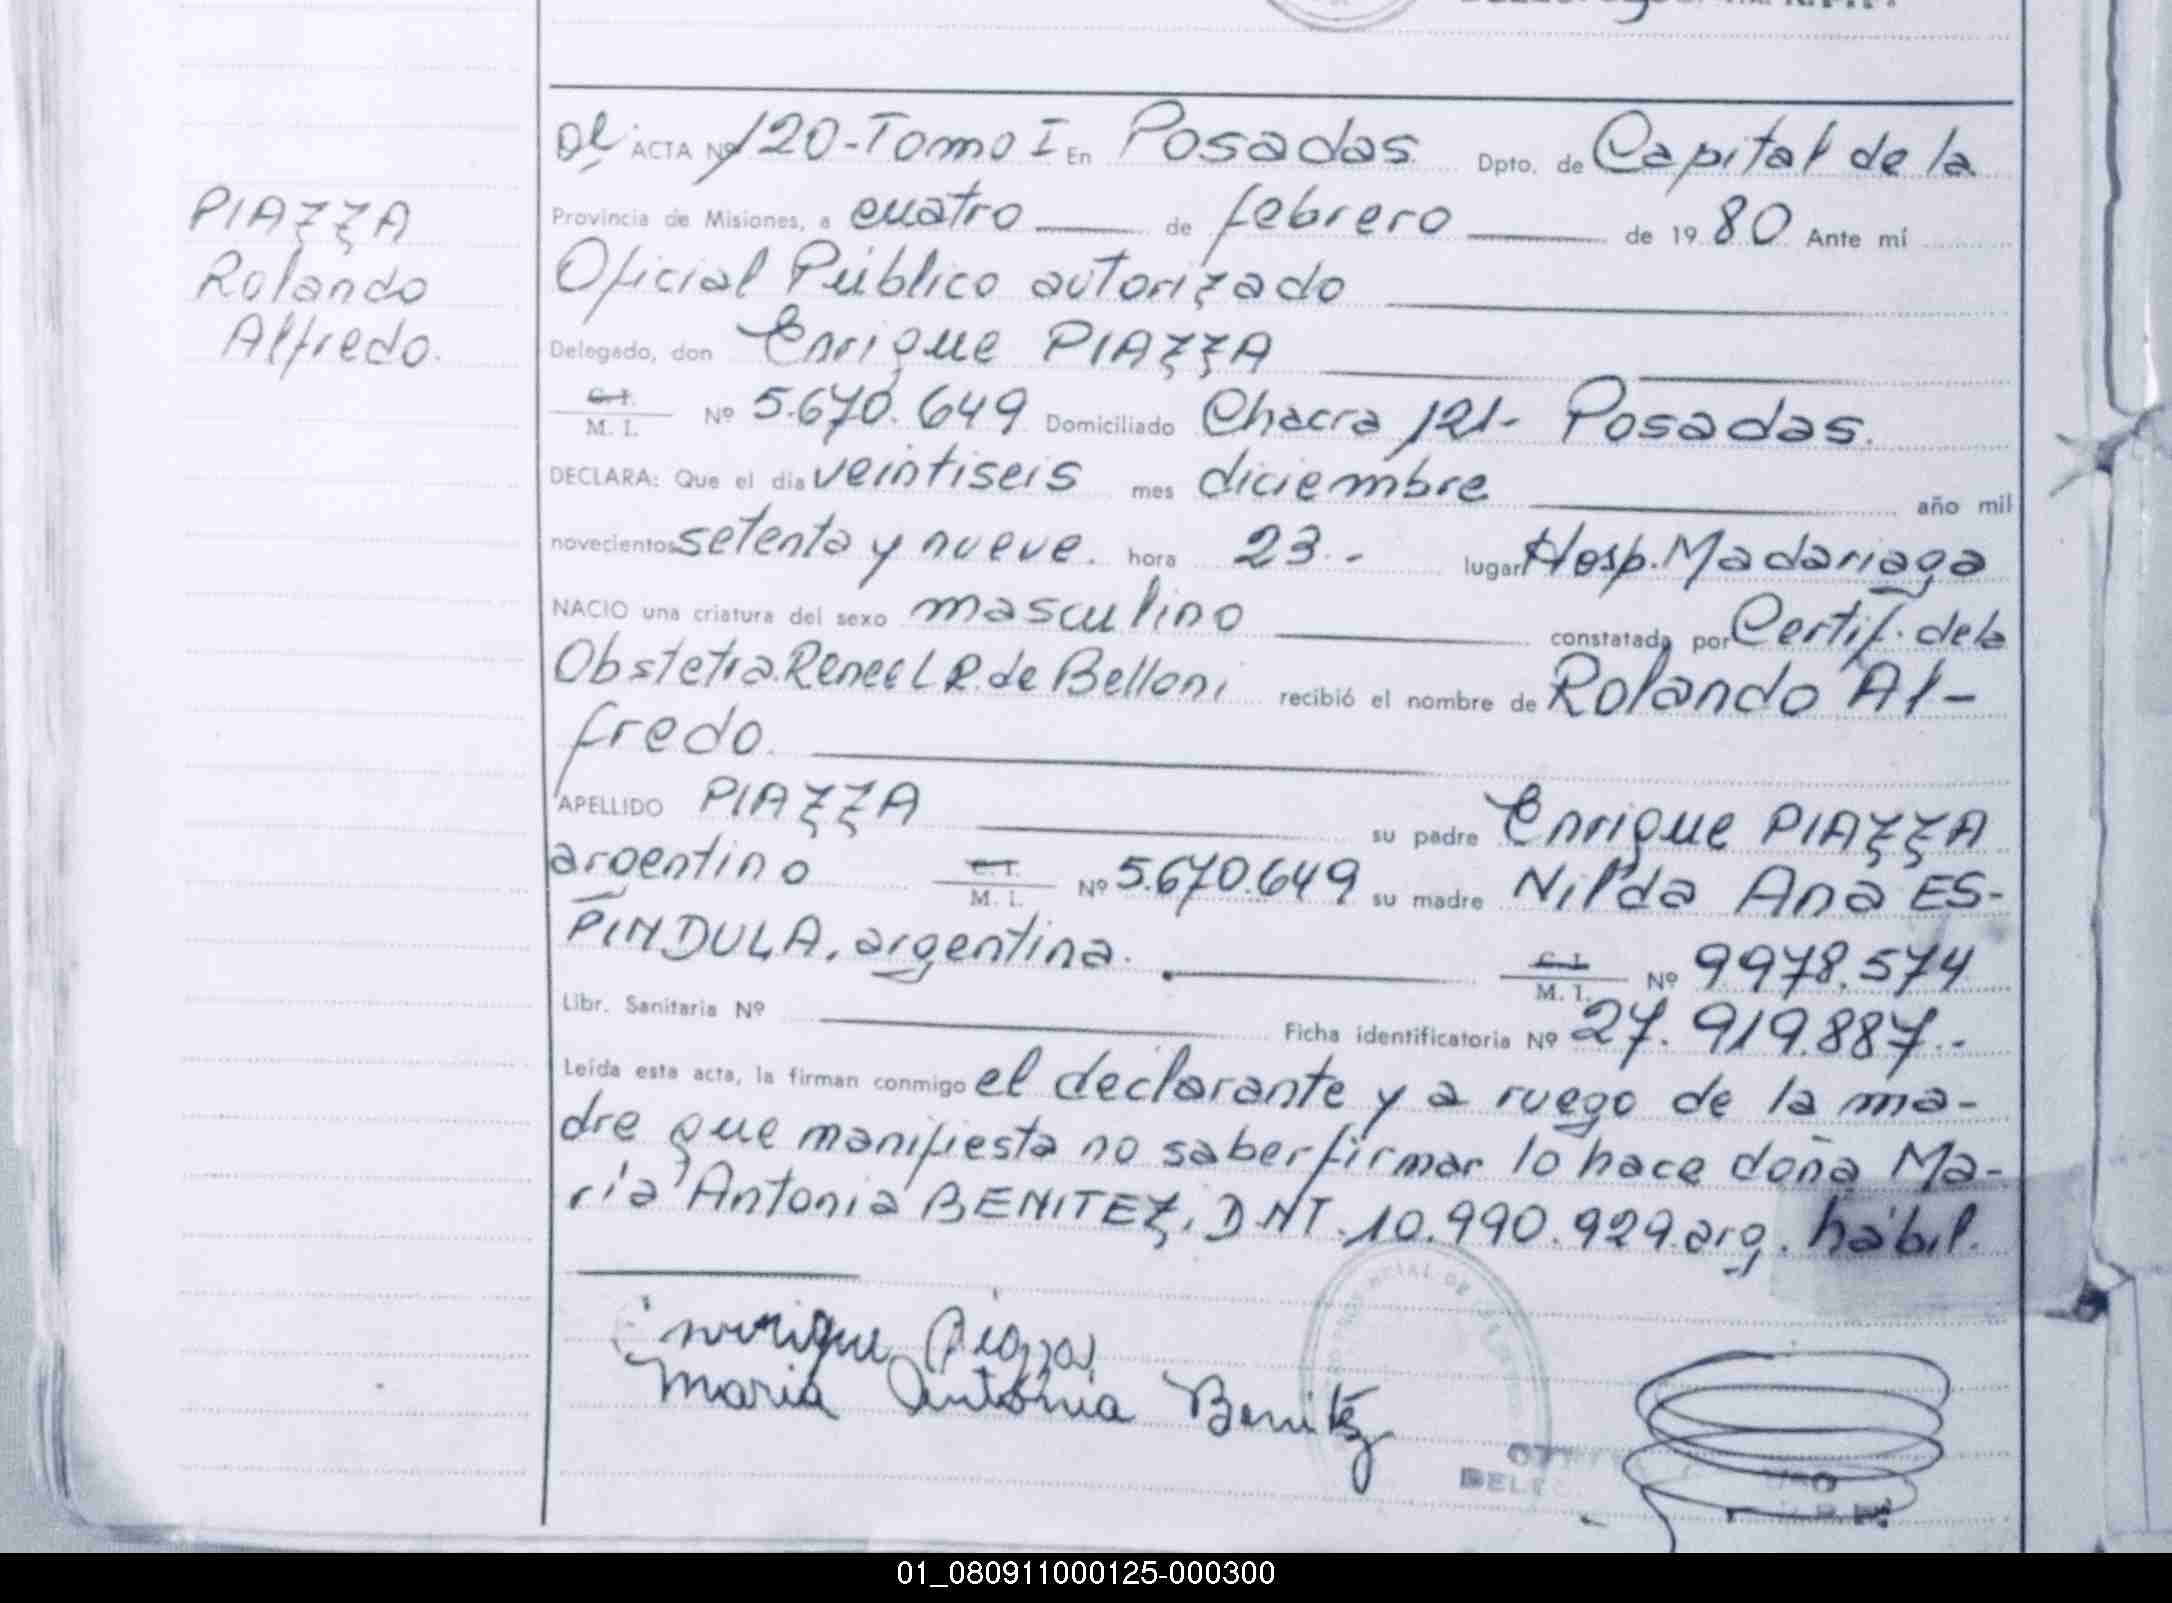 PIAZZA
Rolando
Alfredo.
ACTA Nº 120-Tomo I En Posadas Dpto. de Capital de la
Provincia de Misiones, a cuatro de febrero de 1980 Ante mí
Oficial Público autorizado
Delegado, don Enrique PIAZZA
C. I.
M. I. Nº 5.670.649 Domiciliado Chacra 121- Posadas.
DECLARA: Que el día veintiseis mes diciembre año mil
novecientos setenta y nueve. hora 23.- lugar Hosp. Madariaga
NACIO una criatura del sexo masculino constatada por Certif. de la
Obstetra. Renee L R. de Belloni recibió el nombre de Rolando Al-
fredo.
APELLIDO PIAZZA su padre Enrique PIAZZA
argentino C. I. M. I. Nº 5.670.649 su madre Nilda Ana ES-
PINDULA, argentina. C. I. M. I. Nº 9978.574
Libr. Sanitaria Nº Ficha identificatoria Nº 27.919.887.-
Leída esta acta, la firman conmigo el declarante y a ruego de la ma-
dre que manifiesta no saber firmar lo hace doña Ma-
ría Antonia BENITEZ, DNI. 10.990.929. arg. hábil.
Enrique Piazza
Maria Antonia Benitez
01_080911000125-000300